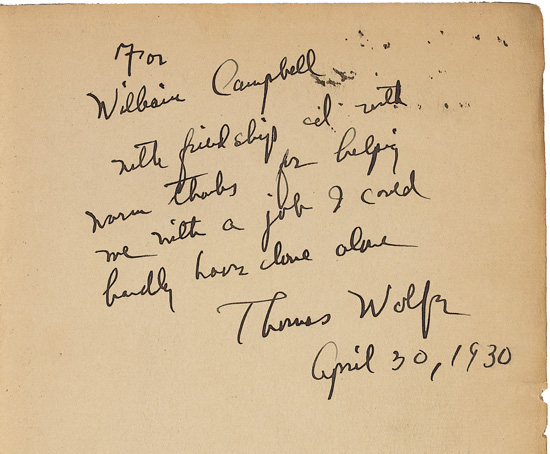 For
William Campbell
with friendship and with
warm thanks for helping
me with a job I could
hardly have done alone
Thomas Wolfe
April 30, 1930